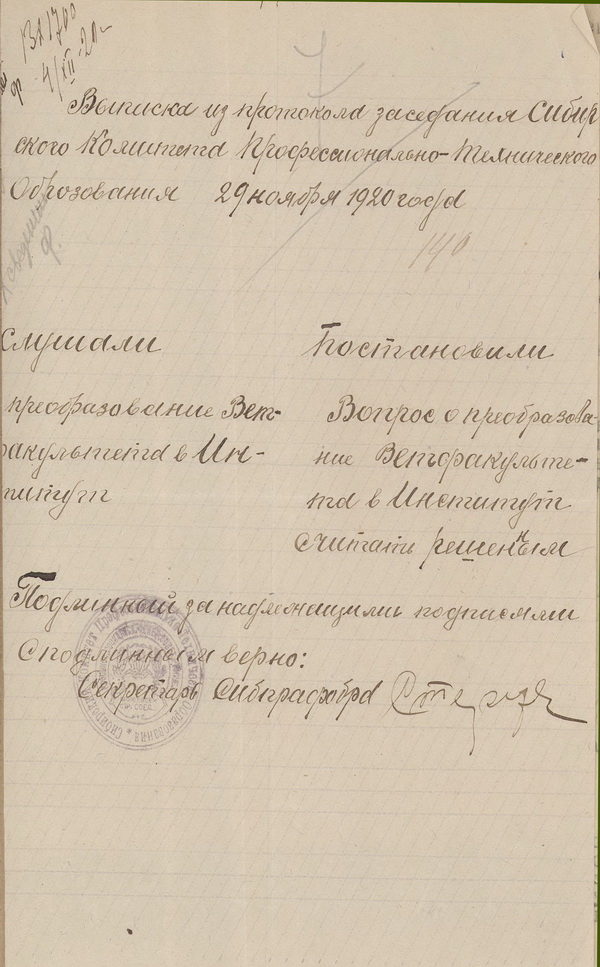 Вх 1700
4/XII-20 г.
Выписка из протокола заседания Сибир
ского Комитета Профессионально-Технического
Образования 29 ноября 1920 года
140
Слушали
преобразование Вет-
факультета в Ин-
титут
Постановили
Вопрос о преобразова-
ние Ветфакульте-
та в Институт
считать решенным
Подлинный за надлежащими подписями
С подлинным верно:
Секретарь Сибпрофобра